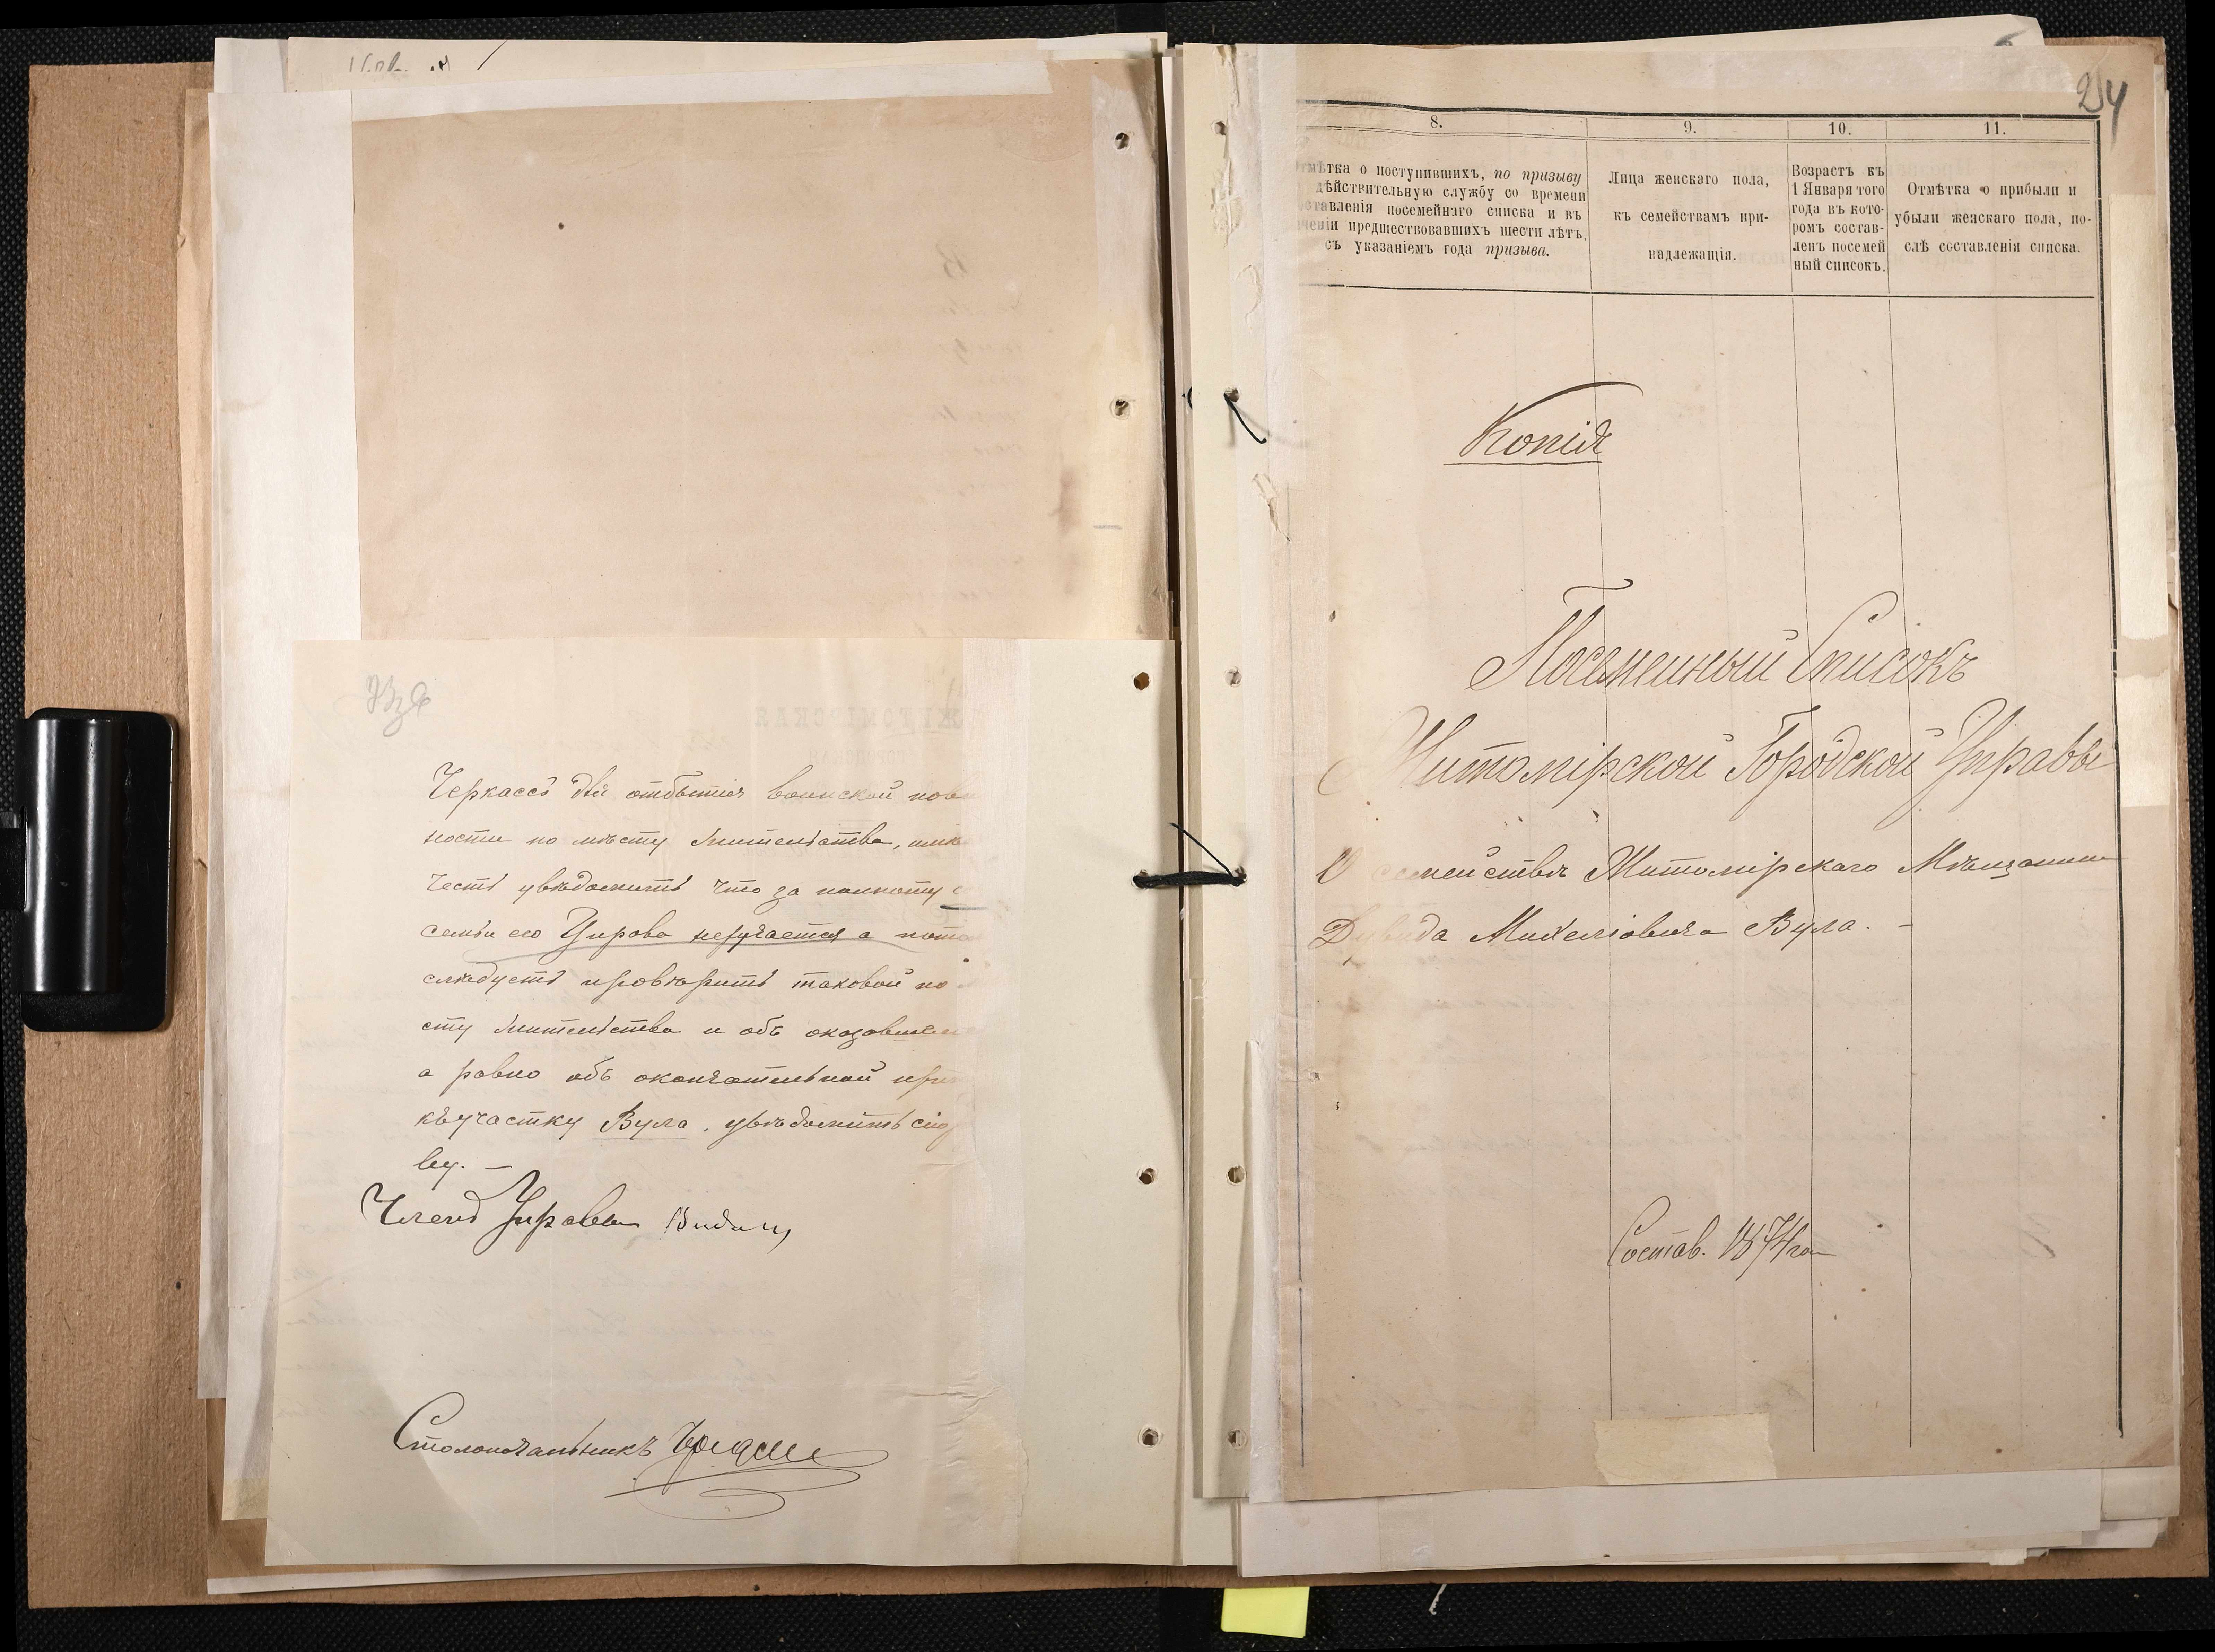 Черкассъ для отбытія воинской пов
ности по мѣсту жительства, имѣ
честь увѣдомить что за полноту
семьи его Управа неручается а пото
слѣдуетъ провѣрить таковой по
сту жительства и объ оказавшем
а равно объ окончательной при
къ участку Вула, увѣдомить сію
ву. —
Членъ Управы
Столоначальникъ
24
8. 9. 10. 11.
тмѣтка о поступившихъ, по призыву
дѣйствительную службу со времени
ставленія посемейнаго списка и въ
ченіи предшествовавшихъ шести лѣтъ,
съ указаніемъ года призыва.
Лица женскаго пола,
къ семействамъ при-
надлежащія.
Возрастъ къ
1 Января того
года въ кото-
ромъ состав-
ленъ посемей
ный списокъ.
Отмѣтка о прибыли и
убыли женскаго пола, по-
слѣ составленія списка.
Копія
Посемейный Списокъ
Житомірской Городской Управы
О семействѣ Житомірскаго Мѣщанина
Дувида Михелiовича Вула. —
Состав. 1874 го